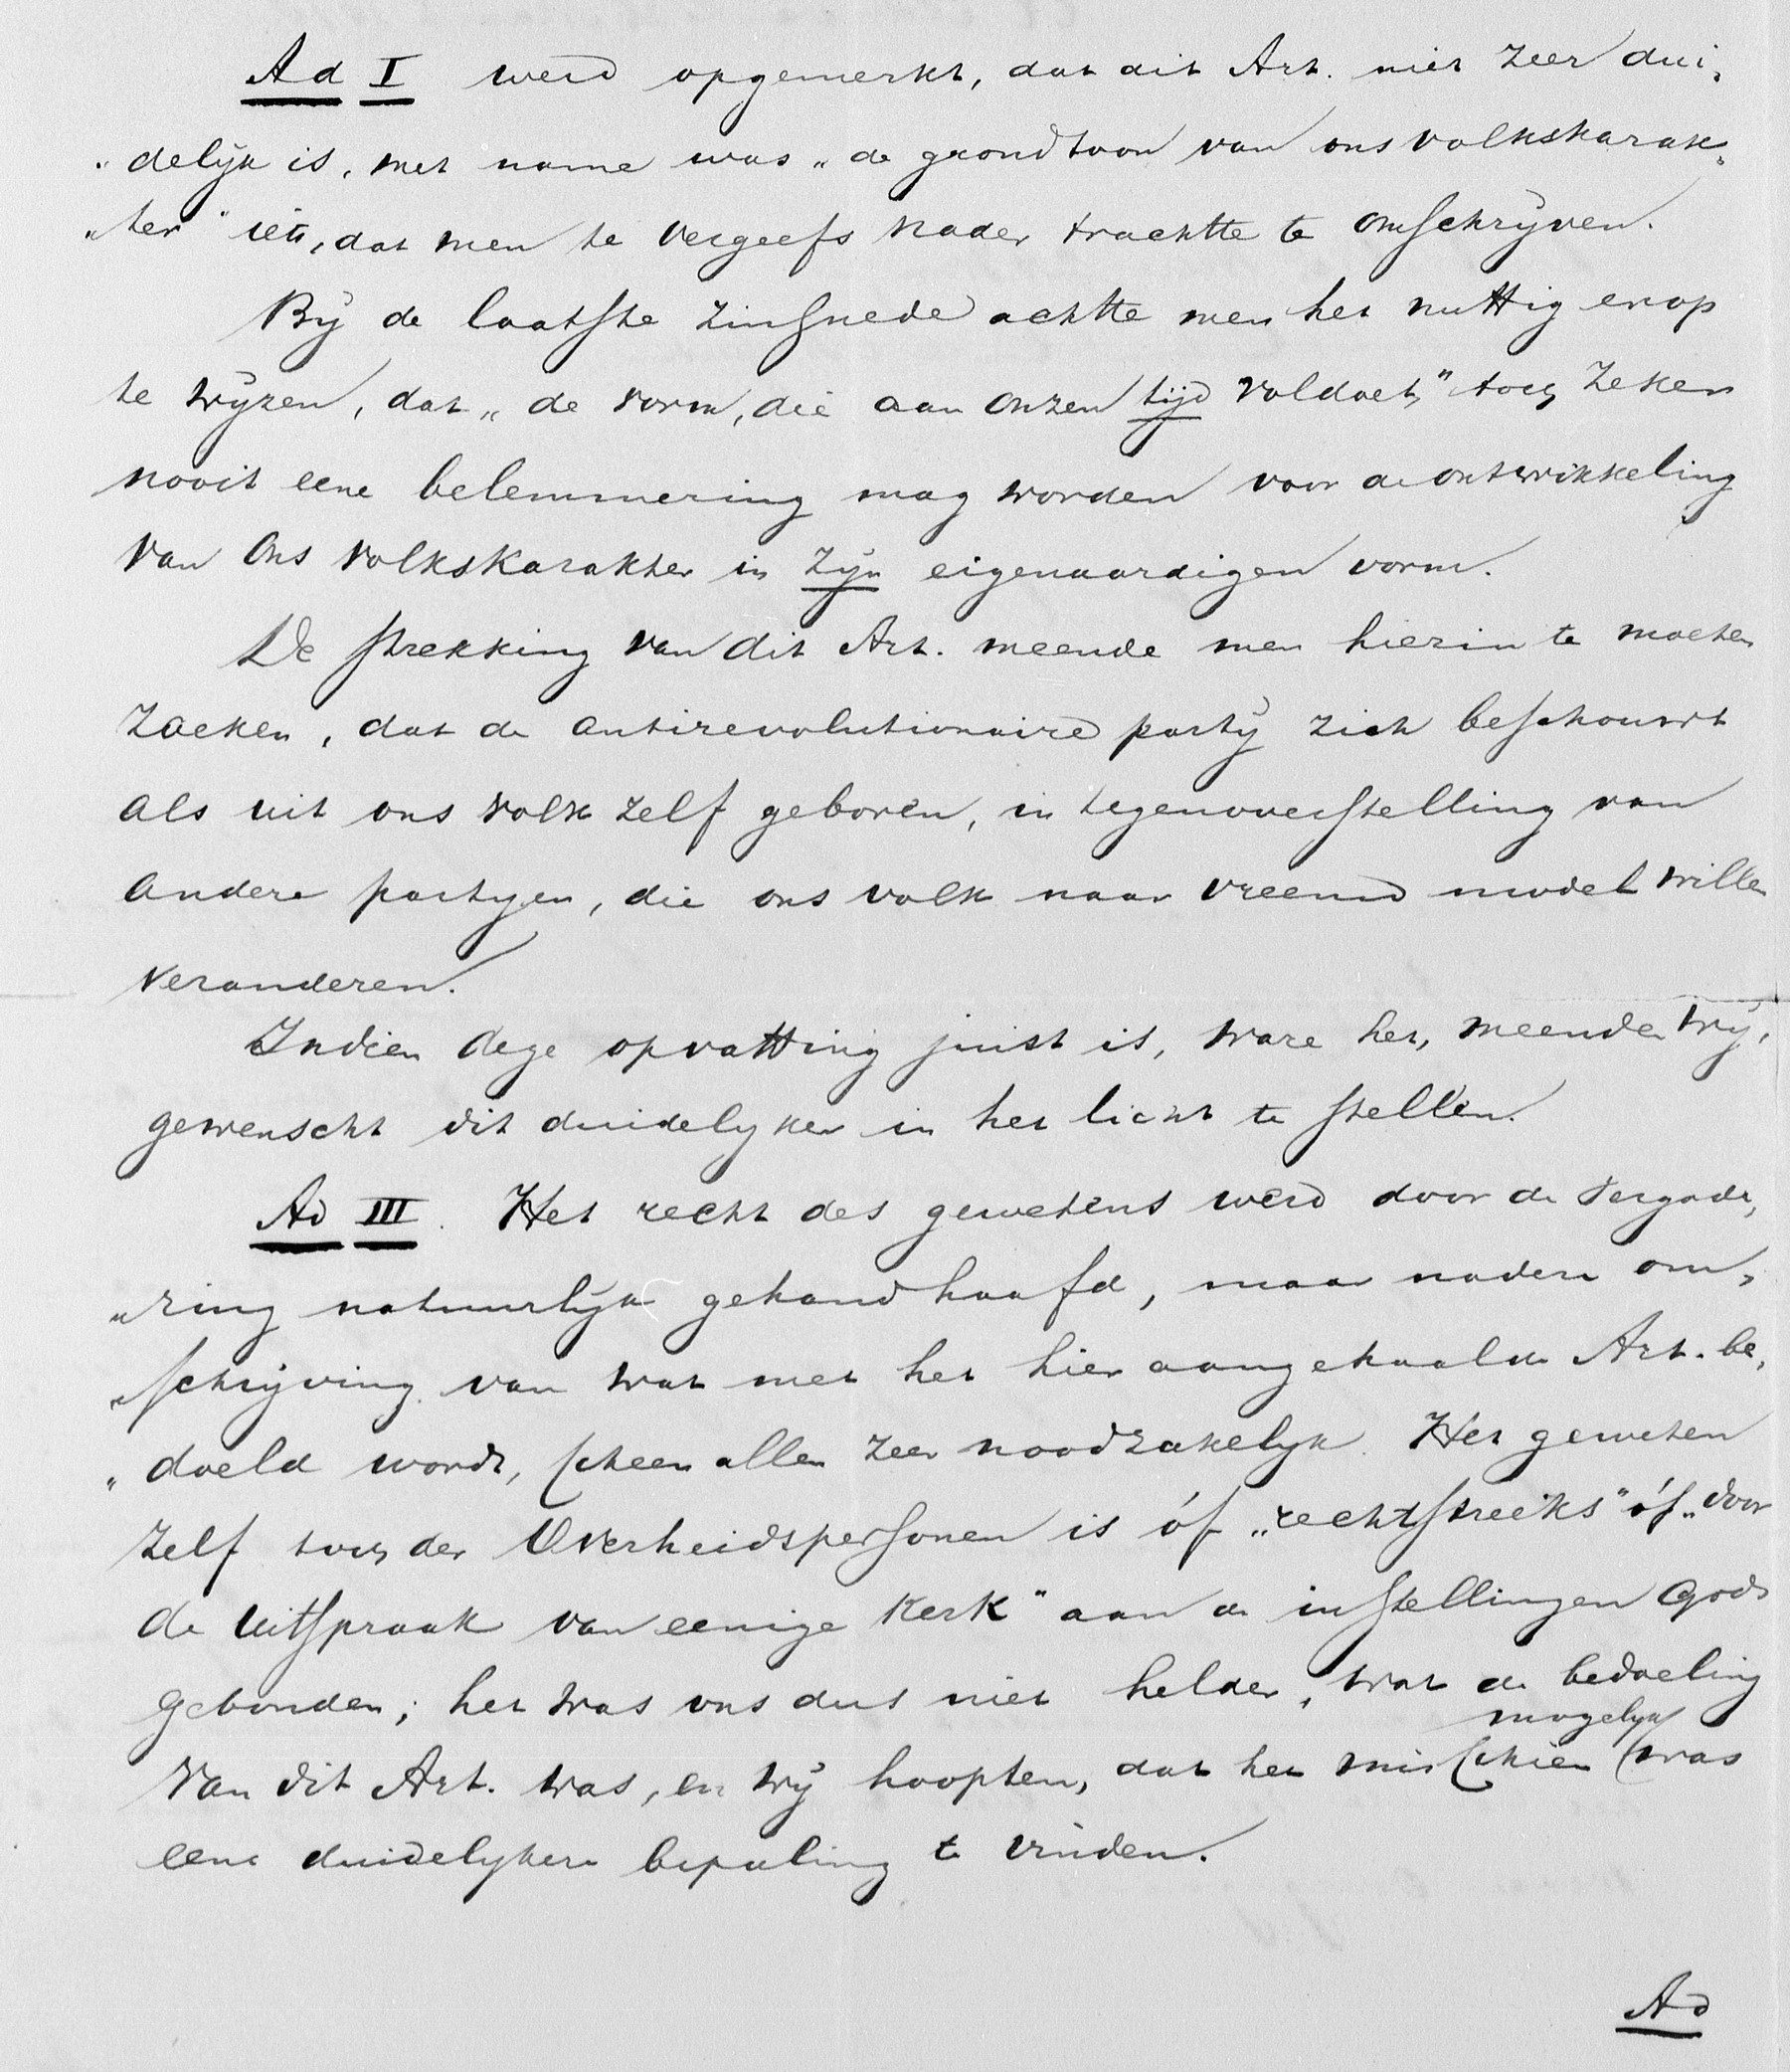 Ad I werd opgemerkt, dat dit Art. niet zeer dui„
„delijk is, met name was „de grondtoon van ons volkskarak„
„ter" iets, dat men te vergeefs nader trachtte te omschrijven.
Bij de laatste zinsnede achtte men het nuttig erop
te wijzen, dat „de vorm, die aan onzen tijd voldoet," toch zeker
nooit eene belemmering mag worden voor de ontwikkeling
van ons volkskarakter in zijn eigenaardigen vorm.
De strekking van dit Art. meende men hierin te moeten
zoeken, dat de antirevolutionaire partij zich beschouwt
als uit ons volk zelf geboren, in tegenoverstelling van
andere partijen, die ons volk naar vreemd model willen
veranderen.
Indien deze opvatting juist is, ware het, meenden wij,
gewenscht dit duidelijker in het licht te stellen.
Ad III. Het recht des gewetens werd door de vergade„
„ring natuurlijk gehandhaafd, maar nadere om„
„schrijving van wat met het hier aangehaalde Art. be„
„doeld wordt, scheen allen zeer noodzakelijk. Het geweten
zelf toch der Overheidspersonen is óf „rechtstreeks" óf „door
de uitspraak van eenige Kerk" aan de instellingen Gods
gebonden; het was ons dus niet helder, wat de bedoeling
mogelijk
van dit Art. was, en wij hoopten, dat het misschien was
eene duidelijkere bepaling te vinden.
Ad